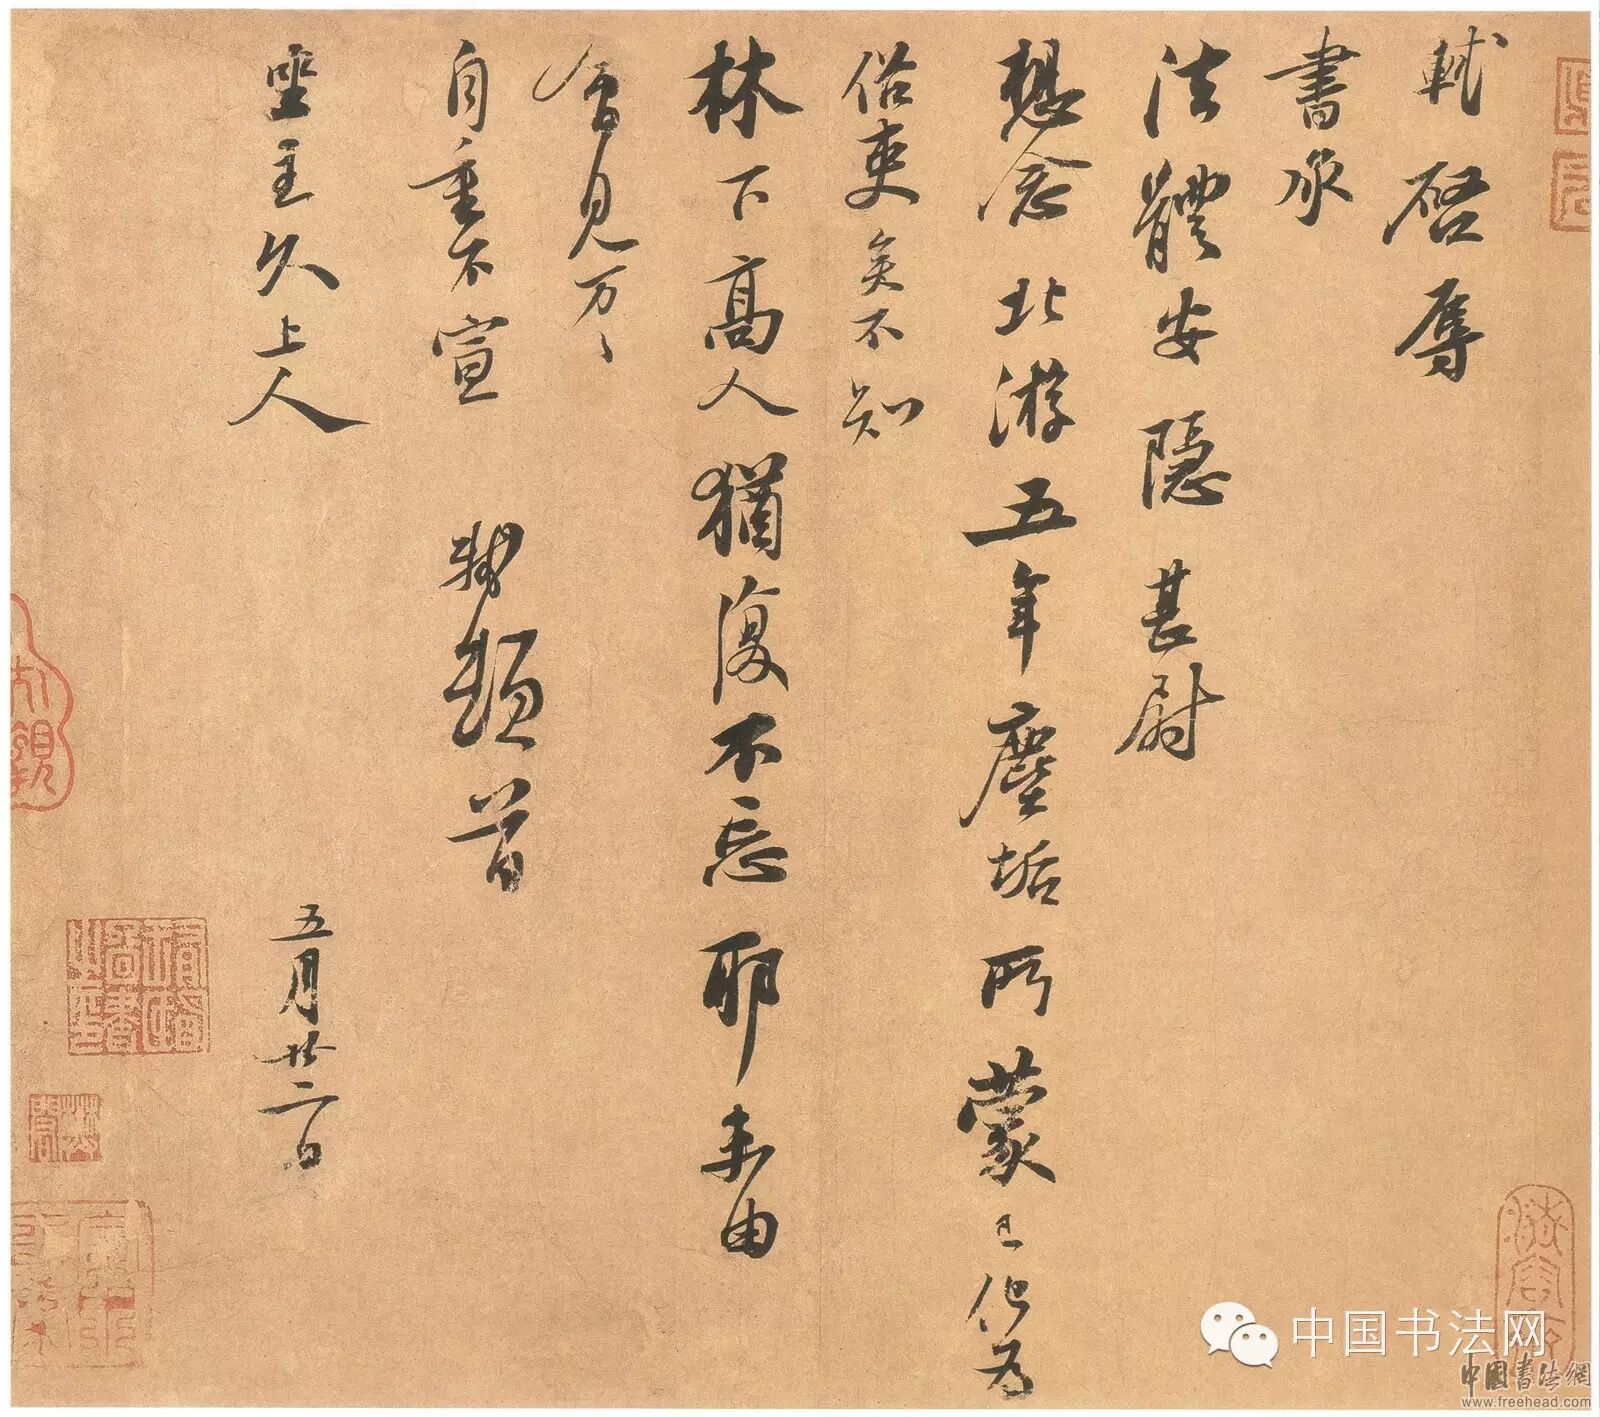 軾啓辱
書承
法體安隱甚慰
想念北游五年塵垢所蒙已化爲
俗吏矣不知
林下高人猶復不忘耶未由
會見万〻
自重不宣 軾頓首
坐主久上人
五月廿二日
中国书法网
中國書法網
www.freehead.com